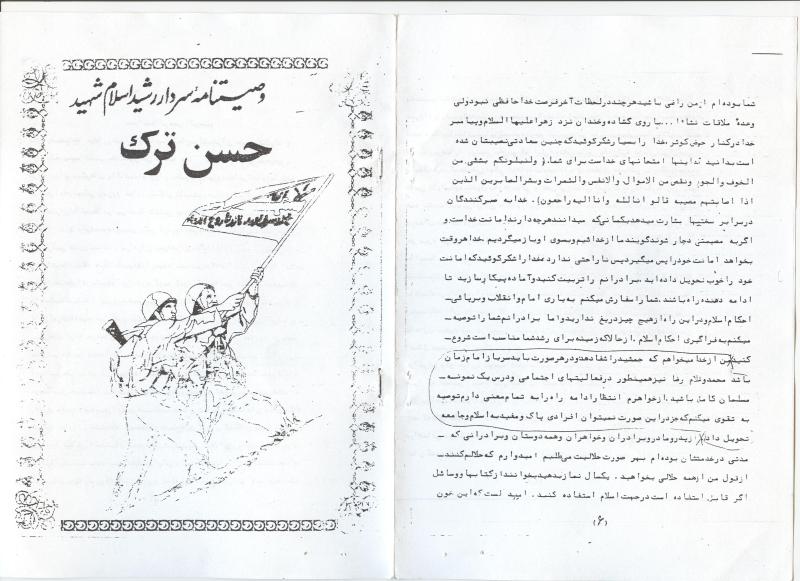 وصیتنامهٔ سردار رشید اسلام شهید
حسن ترک
شما بوده‌ام ازمن راضی باشید هرچند در لحظات آخر فرصت خداحافظی نبود ولی
وعدهٔ ملاقات با روی گشاده و خندان نزد زهرا علیها السلام و پیامبر
خدا در کنار حوض کوثر، خدا را بسیار شکر گوئید که چنین سعادتی نصیبتان شده
است بدانید که اینها امتحانهای خداست برای شما (ولنبلونکم بشئی من
الخوف والجوع ونقص من الاموال والانفس والثمرات وبشر الصابرین الذین
اذا اصابتهم مصیبه قالو اناللله واناالیه راجعون). خدا به صبرکنندگان
در برابر سختیها بشارت میدهد بکسانی که میدانند هرچه دارند امانت خداست و
اگر به مصیبتی دچار شوند گویند ما از خدائیم و بسوی او باز میگردیم .خدا هر وقت
بخواهد امانت خود را پس میگیرد پس ناراحتی ندارد خدا را شکر گوئید که امانت
خود را خوب تحویل داده‌اید .برادرانم را تربیت کنید و آماده پیکار سازید تا
ادامه دهنده راه باشند .شما را سفارش میکنم به یاری امام و انقلاب و برپائی ـ
احکام اسلام و در این راه از هیچ چیز دریغ ندارید و اما برادرانم شما را توصیه ـ
میکنم به فراگیری احکام اسلام .از حالا که زمینه برای رشد شما مناسب است شروع ـ
کنید من از خدا میخواهم که جمشید را شفا دهد و در هر صورت باید سرباز امام زمان
باشد محمد و غلام رضا نیز همینطور در فعالیتهای اجتماعی و درس یک نمونه ـ
مسلمان کامل باشید .از خواهرم انتظار ادامه راه را به تمام معنی دارم توصیه
به تقوی میکنم که جز در این صورت نمیتوان افرادی پاک و مفید به اسلام و جامعه
تحویل داد. از پدر و مادر و برادران و خواهران و همه دوستان و برادرانی که ـ
مدتی در خدمتشان بوده‌ام بهر صورت حلالیت می‌طلبم امیدوارم که حلالم کنند ـ
از قول من از همه حلالی بخواهید . یکسال نماز بدهید بخوانند از کتابها و وسائل
اگر قابل استفاده است در جهت اسلام استفاده کنید . امید است که این خون
(۶)